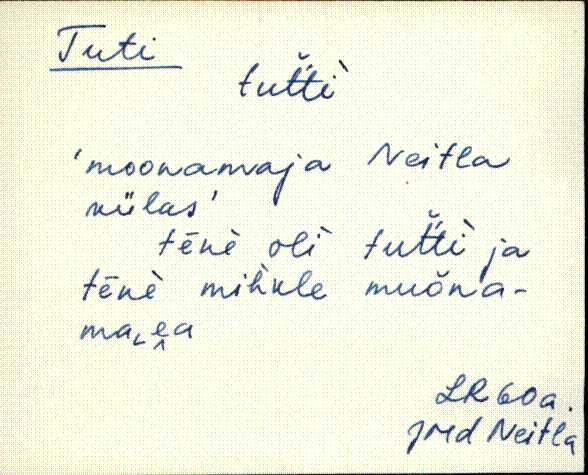 Tuti
tut̆t́ì
'moonamaja Neitla
külas'
tēnè olì tut̆t́ì ja
tēnè mihkle muŏna-
ma˪e̬a
LR 60a.
JMd Neitla